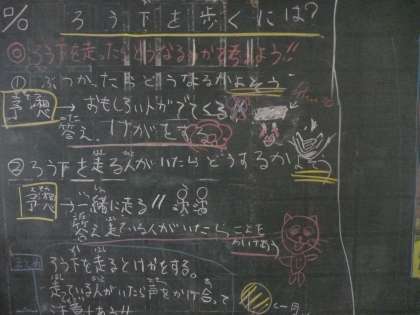 ろう下を歩くには?
◎ろう下を走ったらどうなるかを考えよう!!
①ぶつかったらどうなるかよそう
予想→おもしろい人がでてくる
答え、けがをする。
②ろう下を走る人がいたらどうするか
予想→一緒に走る!!
答え 走っている人がいたら
まとめ
ろう下を走るとけがをする。
走っている人がいたら声をかけ合って